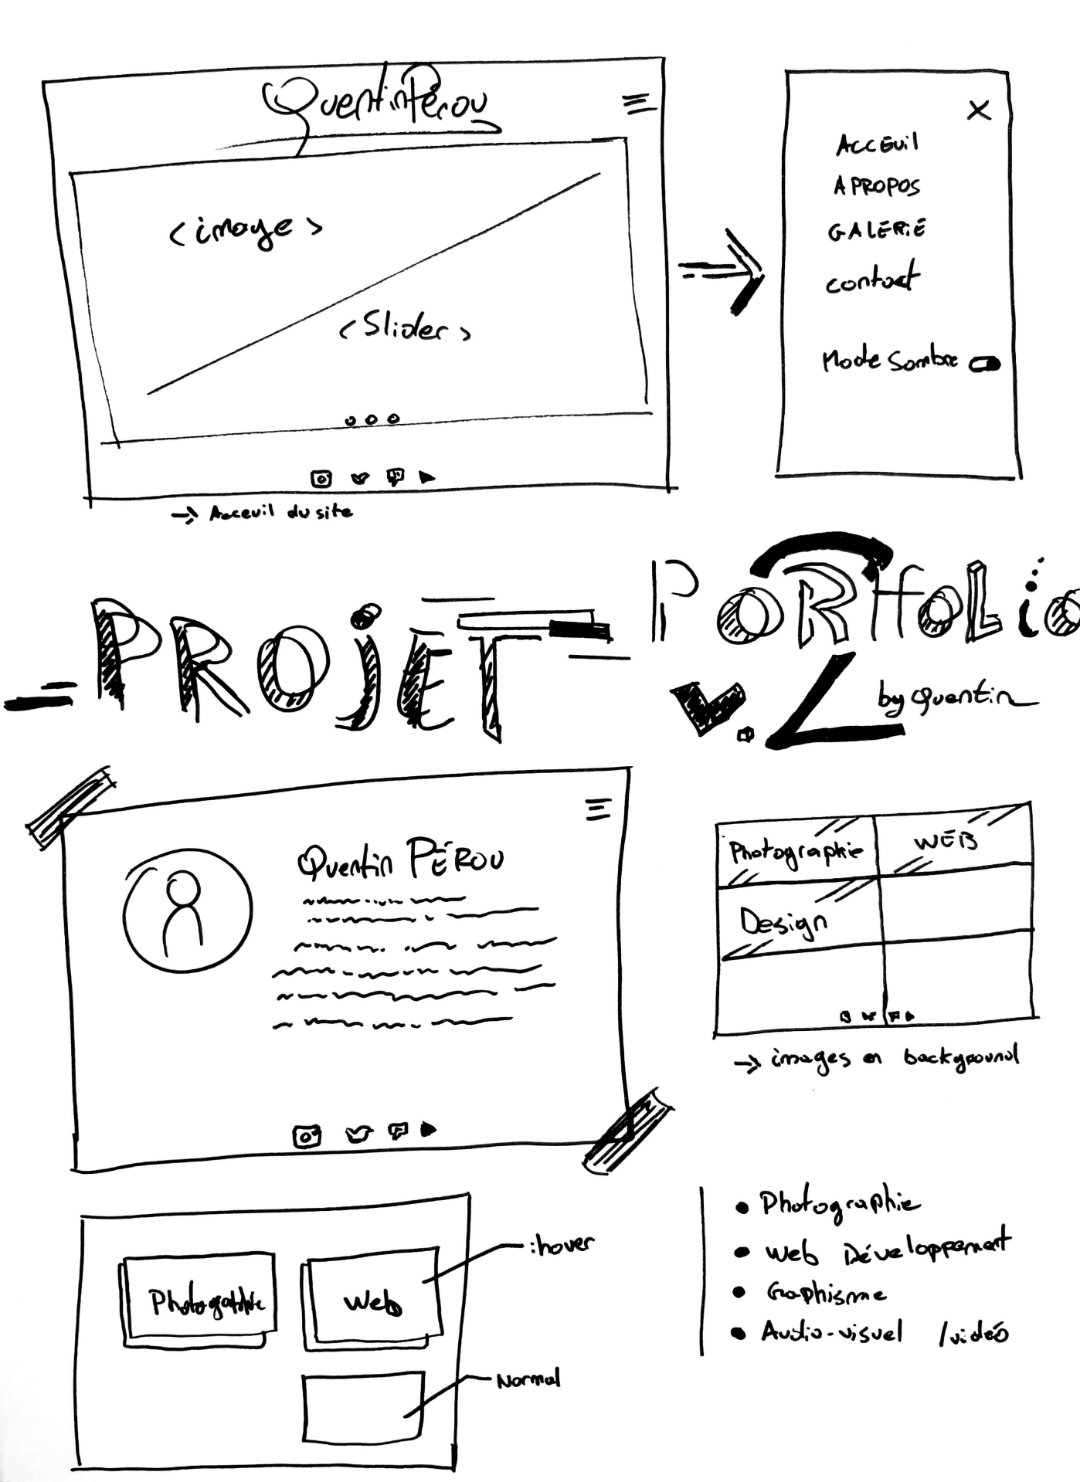 Quentin Pérou
<image>
<Slider>
→ Acceuil du site
X
ACCEUIL
A PROPOS
GALERIE
contact
Mode Sombre
PROJET
PORtfoLio
V.2
by Quentin
Quentin PÉROU
Photographie
WEB
Design
→ images en background
Photographie
Web
:hover
Normal
• Photographie
• Web Développement
• Graphisme
• Audio-visuel /vidéo